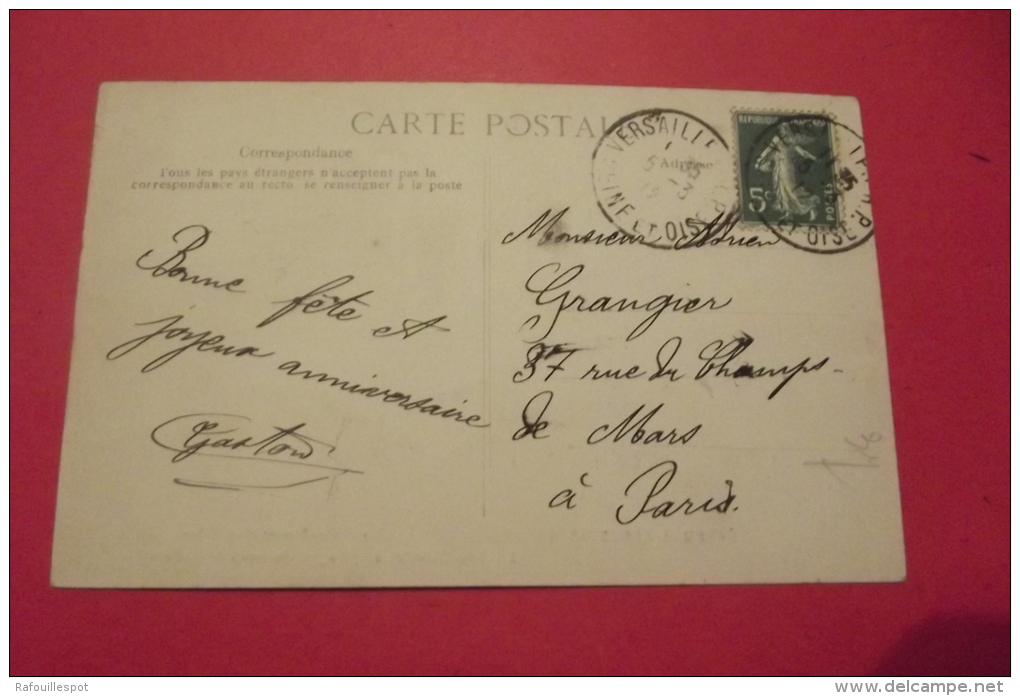 CARTE POSTALE
Correspondance
Tous les pays étrangers n'acceptent pas la
correspondance au recto, se renseigner à la poste
Adresse
VERSAILLES
SEINE ET OISE
REPUBLIQUE
5c
POSTES
ET OISE
Bonne fête et
joyeux anniversaire
Gaston
Monsieur Adrien
Grangier
37 rue du Champs-
de Mars
à Paris.
Rafouillespot
www.delcampe.net